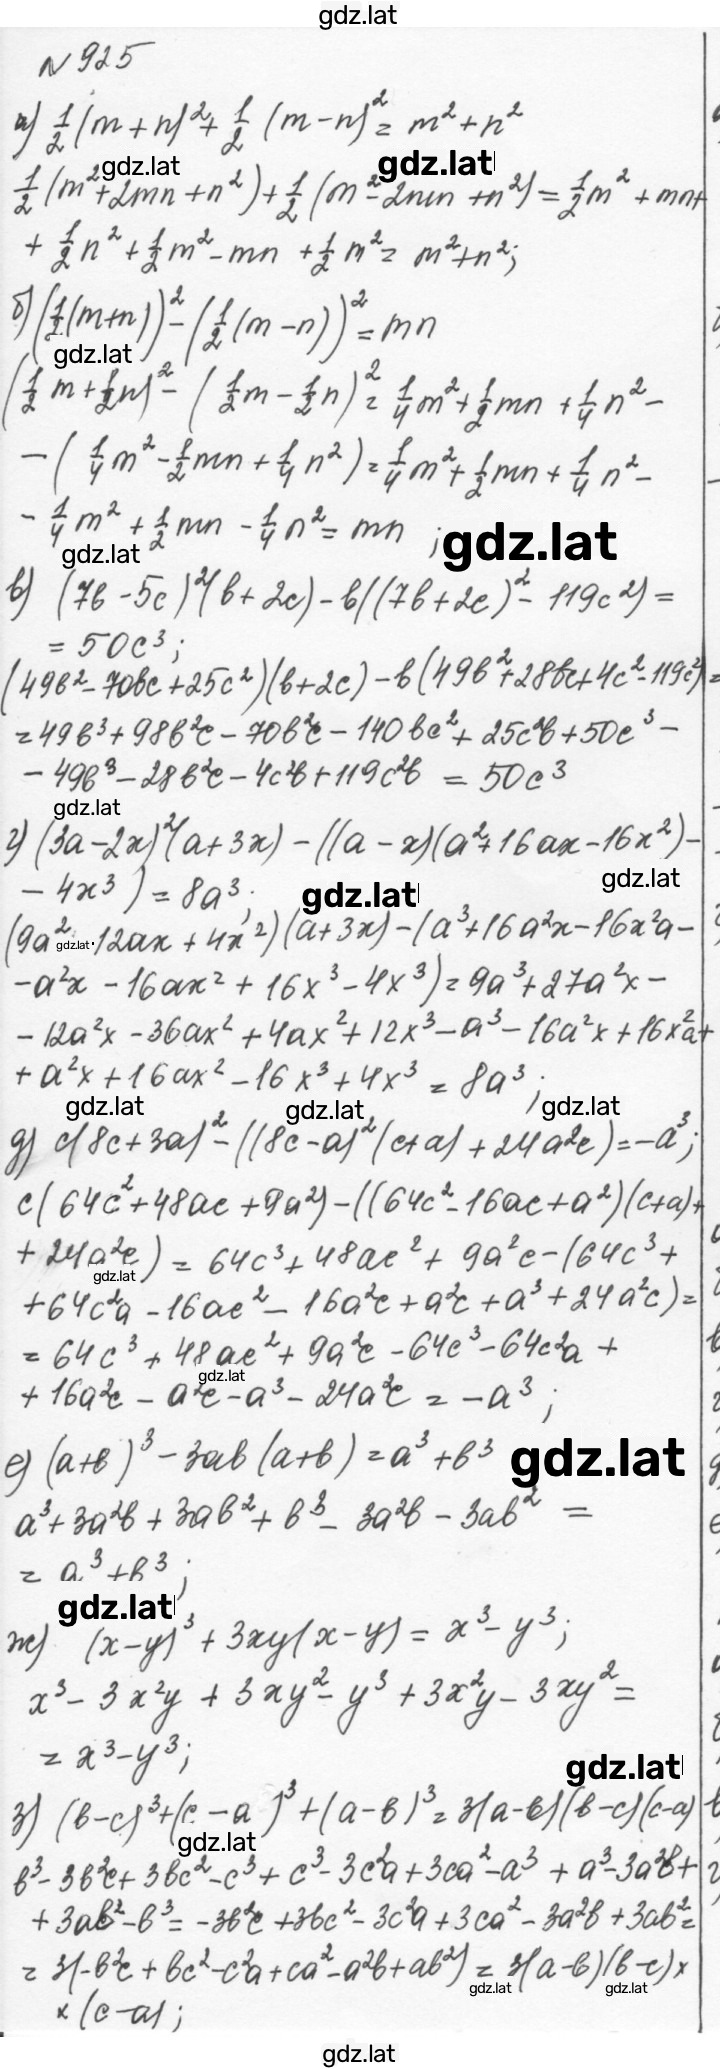 gdz.lat
№ 925
а) 1/2 (m + n)² + 1/2 (m - n)² = m² + n²
gdz.lat gdz.lat
1/2 (m² + 2mn + n²) + 1/2 (m² - 2mn + n²) = 1/2 m² + mn +
+ 1/2 n² + 1/2 m² - mn + 1/2 m² = m² + n²;
б) (1/2 (m+n))² - (1/2 (m - n))² = mn
gdz.lat
(1/2 m + 1/2 n)² - (1/2 m - 1/2 n)² = 1/4 m² + 1/2 mn + 1/4 n² -
- (1/4 m² - 1/2 mn + 1/4 n²) = 1/4 m² + 1/2 mn + 1/4 n² -
- 1/4 m² + 1/2 mn - 1/4 n² = mn ;
gdz.lat gdz.lat
в) (7b - 5c)² (b + 2c) - b((7b + 2c)² - 119c²) =
= 50c³;
(49b² - 70bc + 25c²)(b + 2c) - b(49b² + 28bc + 4c² - 119c²) =
= 49b³ + 98b²c - 70b²c - 140bc² + 25c²b + 50c³ -
- 49b³ - 28b²c - 4c²b + 119c²b = 50c³
gdz.lat
г) (3a - 2x)² (a + 3x) - ((a - x)(a² + 16ax - 16x²) -
- 4x³) = 8a³;
gdz.lat gdz.lat
(9a² - 12ax + 4x²)(a + 3x) - (a³ + 16a²x - 16x²a -
gdz.lat
- a²x - 16ax² + 16x³ - 4x³) = 9a³ + 27a²x -
- 12a²x - 36ax² + 4ax² + 12x³ - a³ - 16a²x + 16x²a +
+ a²x + 16ax² - 16x³ + 4x³ = 8a³;
gdz.lat gdz.lat gdz.lat
д) c(8c + 3a)² - ((8c - a)² (c + a) + 24a²c) = -a³;
c(64c² + 48ac + 9a²) - ((64c² - 16ac + a²)(c + a) +
+ 24a²c) = 64c³ + 48ac² + 9a²c - (64c³ +
gdz.lat
+ 64c²a - 16ac² - 16a²c + a²c + a³ + 24a²c) =
= 64c³ + 48ac² + 9a²c - 64c³ - 64c²a +
gdz.lat
+ 16a²c - a²c - a³ - 24a²c = -a³;
е) (a + b)³ - 3ab(a + b) = a³ + b³
gdz.lat
a³ + 3a²b + 3ab² + b³ - 3a²b - 3ab² =
= a³ + b³;
gdz.lat
ж) (x - y)³ + 3xy(x - y) = x³ - y³;
x³ - 3x²y + 3xy² - y³ + 3x²y - 3xy² =
= x³ - y³;
gdz.lat
з) (b - c)³ + (c - a)³ + (a - b)³ = 3(a - b)(b - c)(c - a)
gdz.lat
b³ - 3b²c + 3bc² - c³ + c³ - 3c²a + 3ca² - a³ + a³ - 3a²b +
+ 3ab² - b³ = -3b²c + 3bc² - 3c²a + 3ca² - 3a²b + 3ab² =
= 3(-b²c + bc² - c²a + ca² - a²b + ab²) = 3(a - b)(b - c) ×
gdz.lat gdz.lat
× (c - a);
gdz.lat